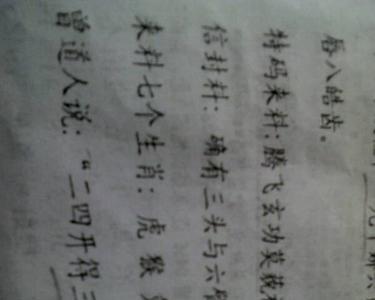 唇八皓齿。
特码来料:腾飞玄功莫藐
信封料:确有三头与六
来料七个生肖:虎猴
曾道人说:“二四开得三